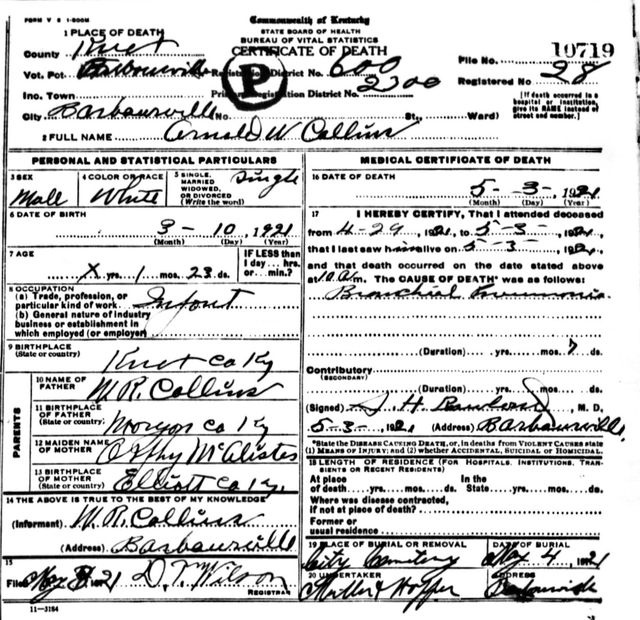 FORM V S 1-500M
Commonwealth of Kentucky
STATE BOARD OF HEALTH
BUREAU OF VITAL STATISTICS
CERTIFICATE OF DEATH
1 PLACE OF DEATH
County Knox
Vot. Pct. Barbourville Registration District No. 600
File No. 10719
Inc. Town Primary Registration District No. 2300
Registered No. 28
P
City Barbourville No. St., Ward)
[If death occurred in a hospital or institution, give its NAME instead of street and number.]
2 FULL NAME Arnold W Collins
PERSONAL AND STATISTICAL PARTICULARS
3 SEX Male
4 COLOR OR RACE White
5 SINGLE, MARRIED WIDOWED, OR DIVORCED (Write the word) Single
6 DATE OF BIRTH
3 - 10, 1921
(Month) (Day) (Year)
7 AGE
X yrs. 1 mos. 23 ds.
IF LESS than 1 day ... hrs. or ... min.?
8 OCCUPATION
(a) Trade, profession, or particular kind of work Infant
(b) General nature of industry business or establishment in which employed (or employer)
9 BIRTHPLACE (State or country)
Knox Co Ky
PARENTS
10 NAME OF FATHER W. R. Collins
11 BIRTHPLACE OF FATHER (State or country) Morgan Co Ky
12 MAIDEN NAME OF MOTHER McAlister
13 BIRTHPLACE OF MOTHER (State or country) Elliott Co Ky.
14 THE ABOVE IS TRUE TO THE BEST OF MY KNOWLEDGE
(Informant) W. R. Collins
(Address) Barbourville
15
Filed May 1921 D. T. Wilson
REGISTRAR
11-3184
MEDICAL CERTIFICATE OF DEATH
16 DATE OF DEATH
5 - 3 -, 1921
(Month) (Day) (Year)
17 I HEREBY CERTIFY, That I attended deceased
from 4-29, 1921, to 5-3-, 1921,
that I last saw him alive on 5-3-, 1921,
and that death occurred on the date stated above
at 10 a m. The CAUSE OF DEATH* was as follows:
Bronchial Pneumonia
(Duration) yrs. mos. 7 ds.
Contributory
(SECONDARY)
(Duration) yrs. mos. ds.
(Signed) J H , M. D.
5-3-, 1921 (Address) Barbourville
*State the DISEASE CAUSING DEATH, or, in deaths from VIOLENT CAUSES state (1) MEANS OF INJURY; and (2) whether ACCIDENTAL, SUICIDAL or HOMICIDAL.
18 LENGTH OF RESIDENCE (FOR HOSPITALS, INSTITUTIONS, TRANSIENTS OR RECENT RESIDENTS)
At place of death yrs. mos. ds. In the State yrs. mos. ds.
Where was disease contracted, if not at place of death?
Former or usual residence
19 PLACE OF BURIAL OR REMOVAL City Cemetery
DATE OF BURIAL May 4, 1921
20 UNDERTAKER Hopper
ADDRESS Barbourville